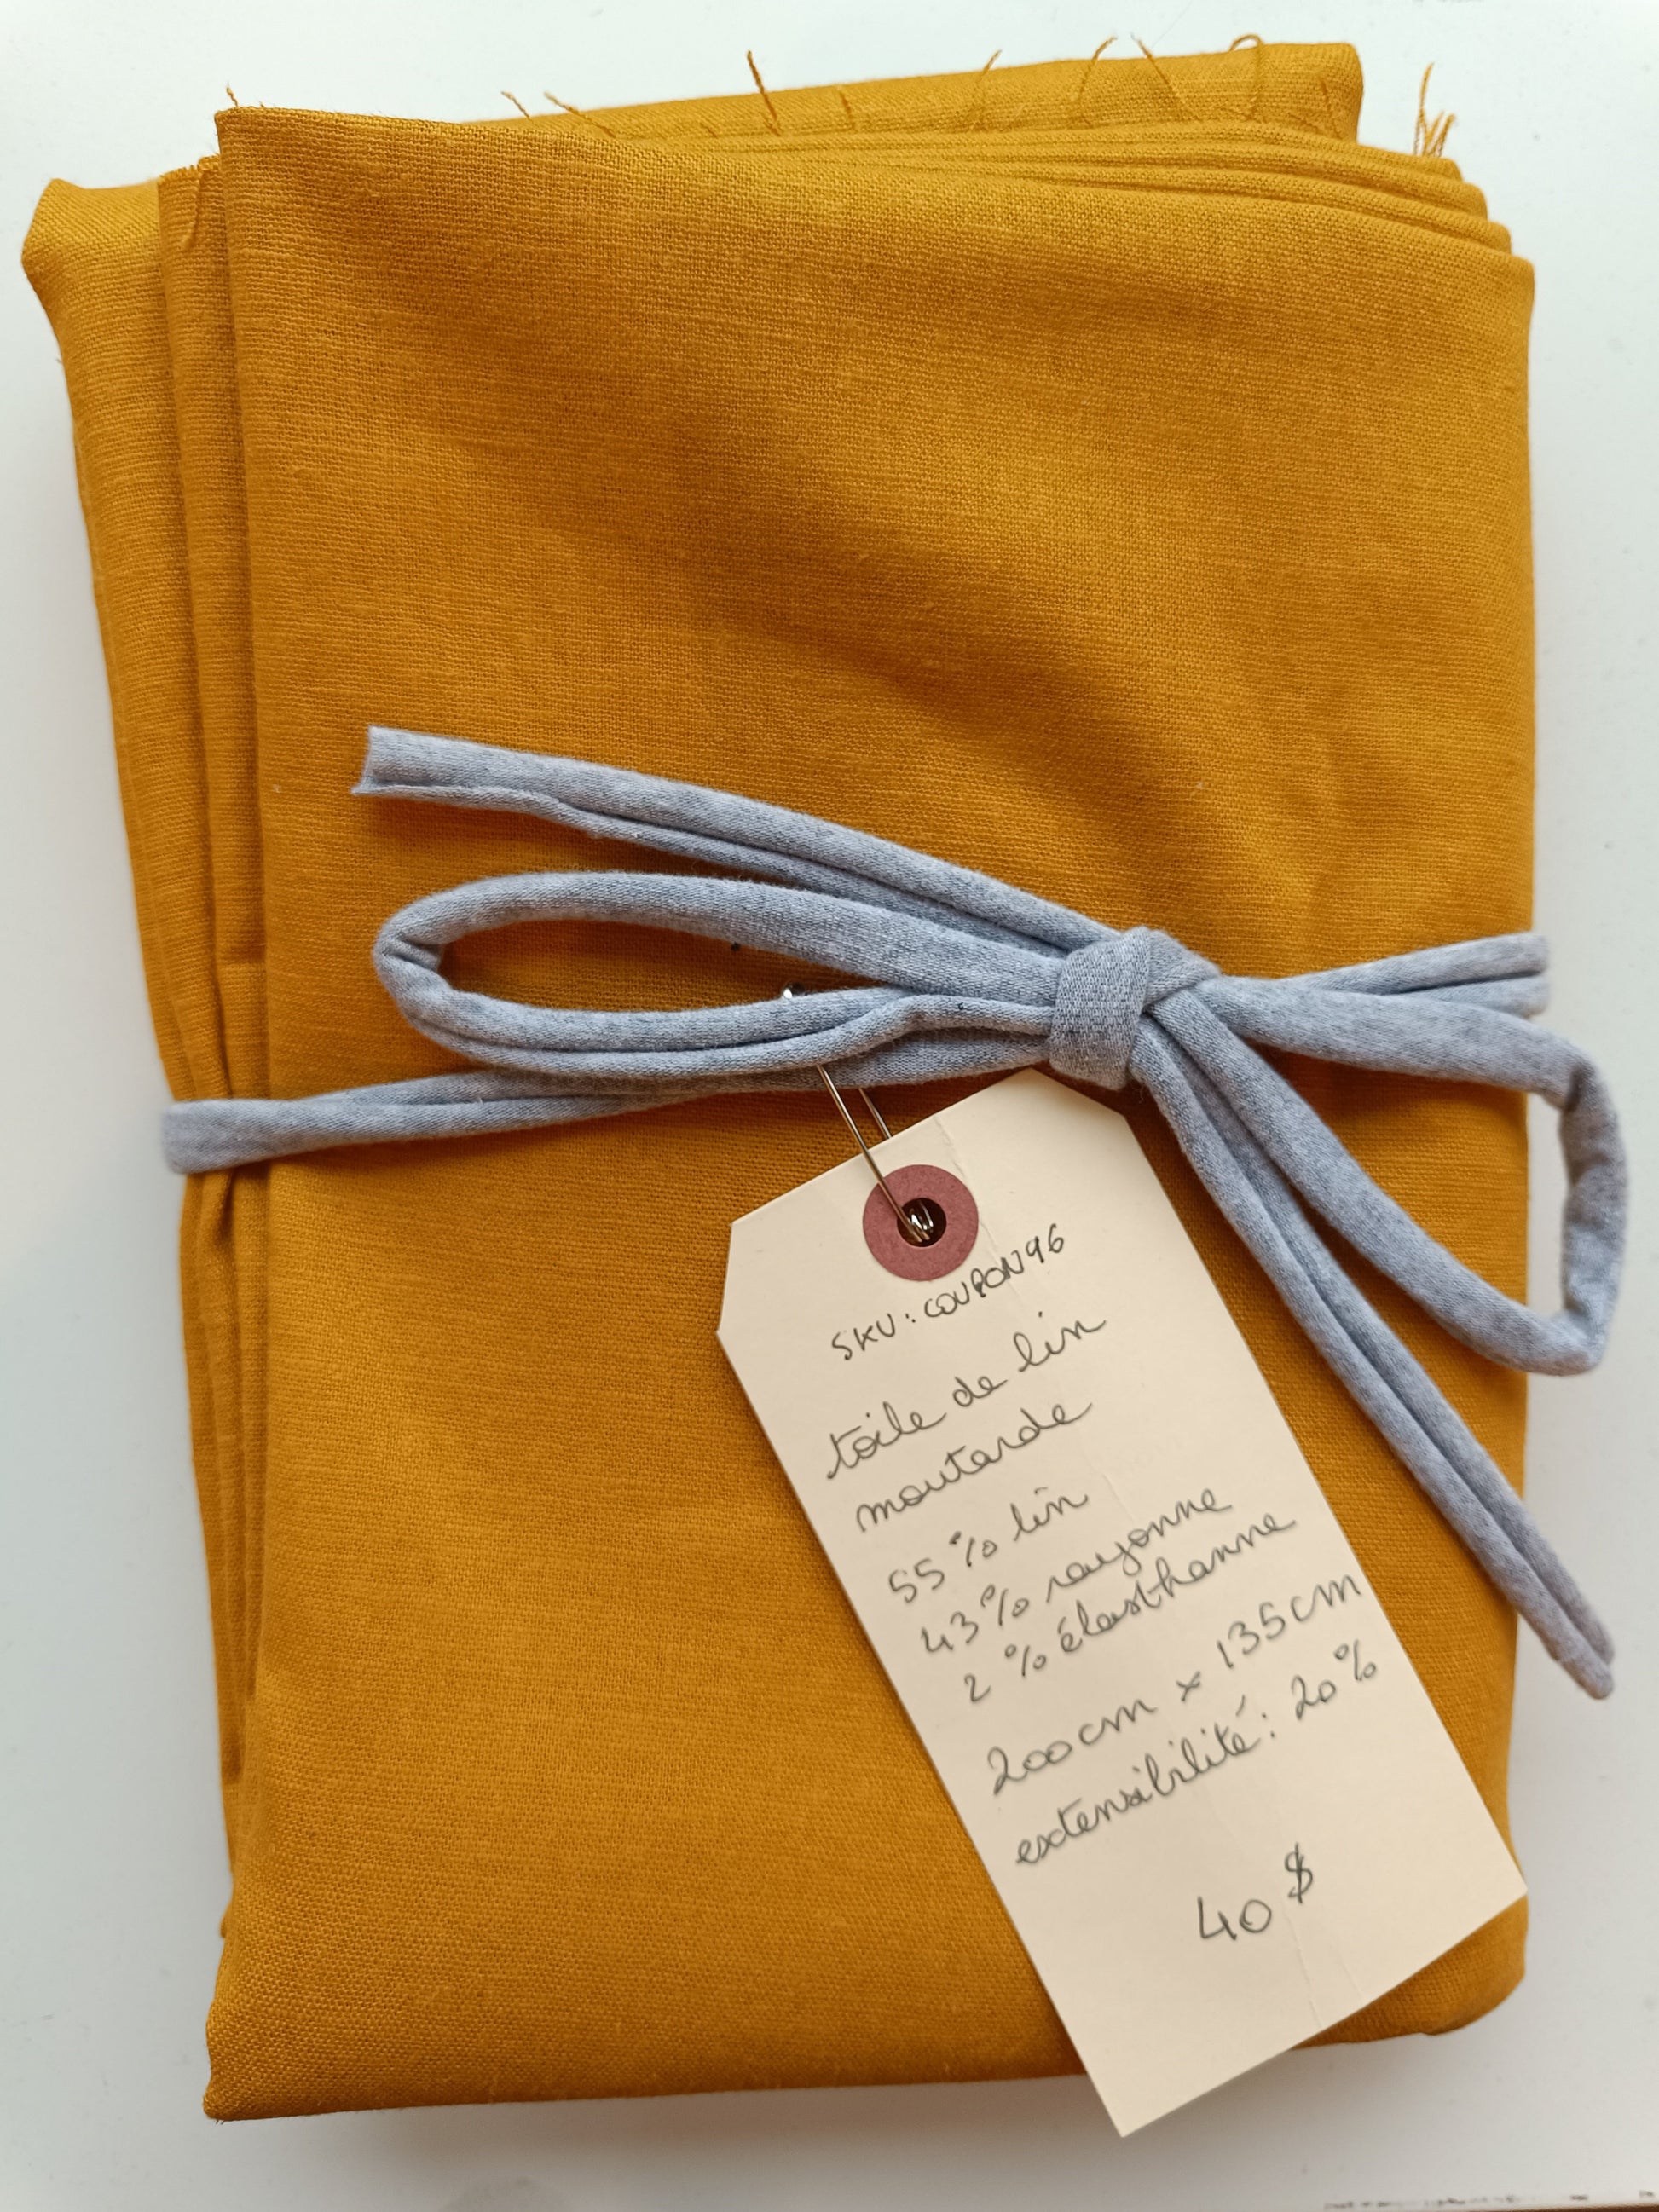 SKU: COUPON96
toile de lin
moutarde
55% lin
43% rayonne
2% élasthanne
200cm x 135cm
extensibilité: 20%
40$